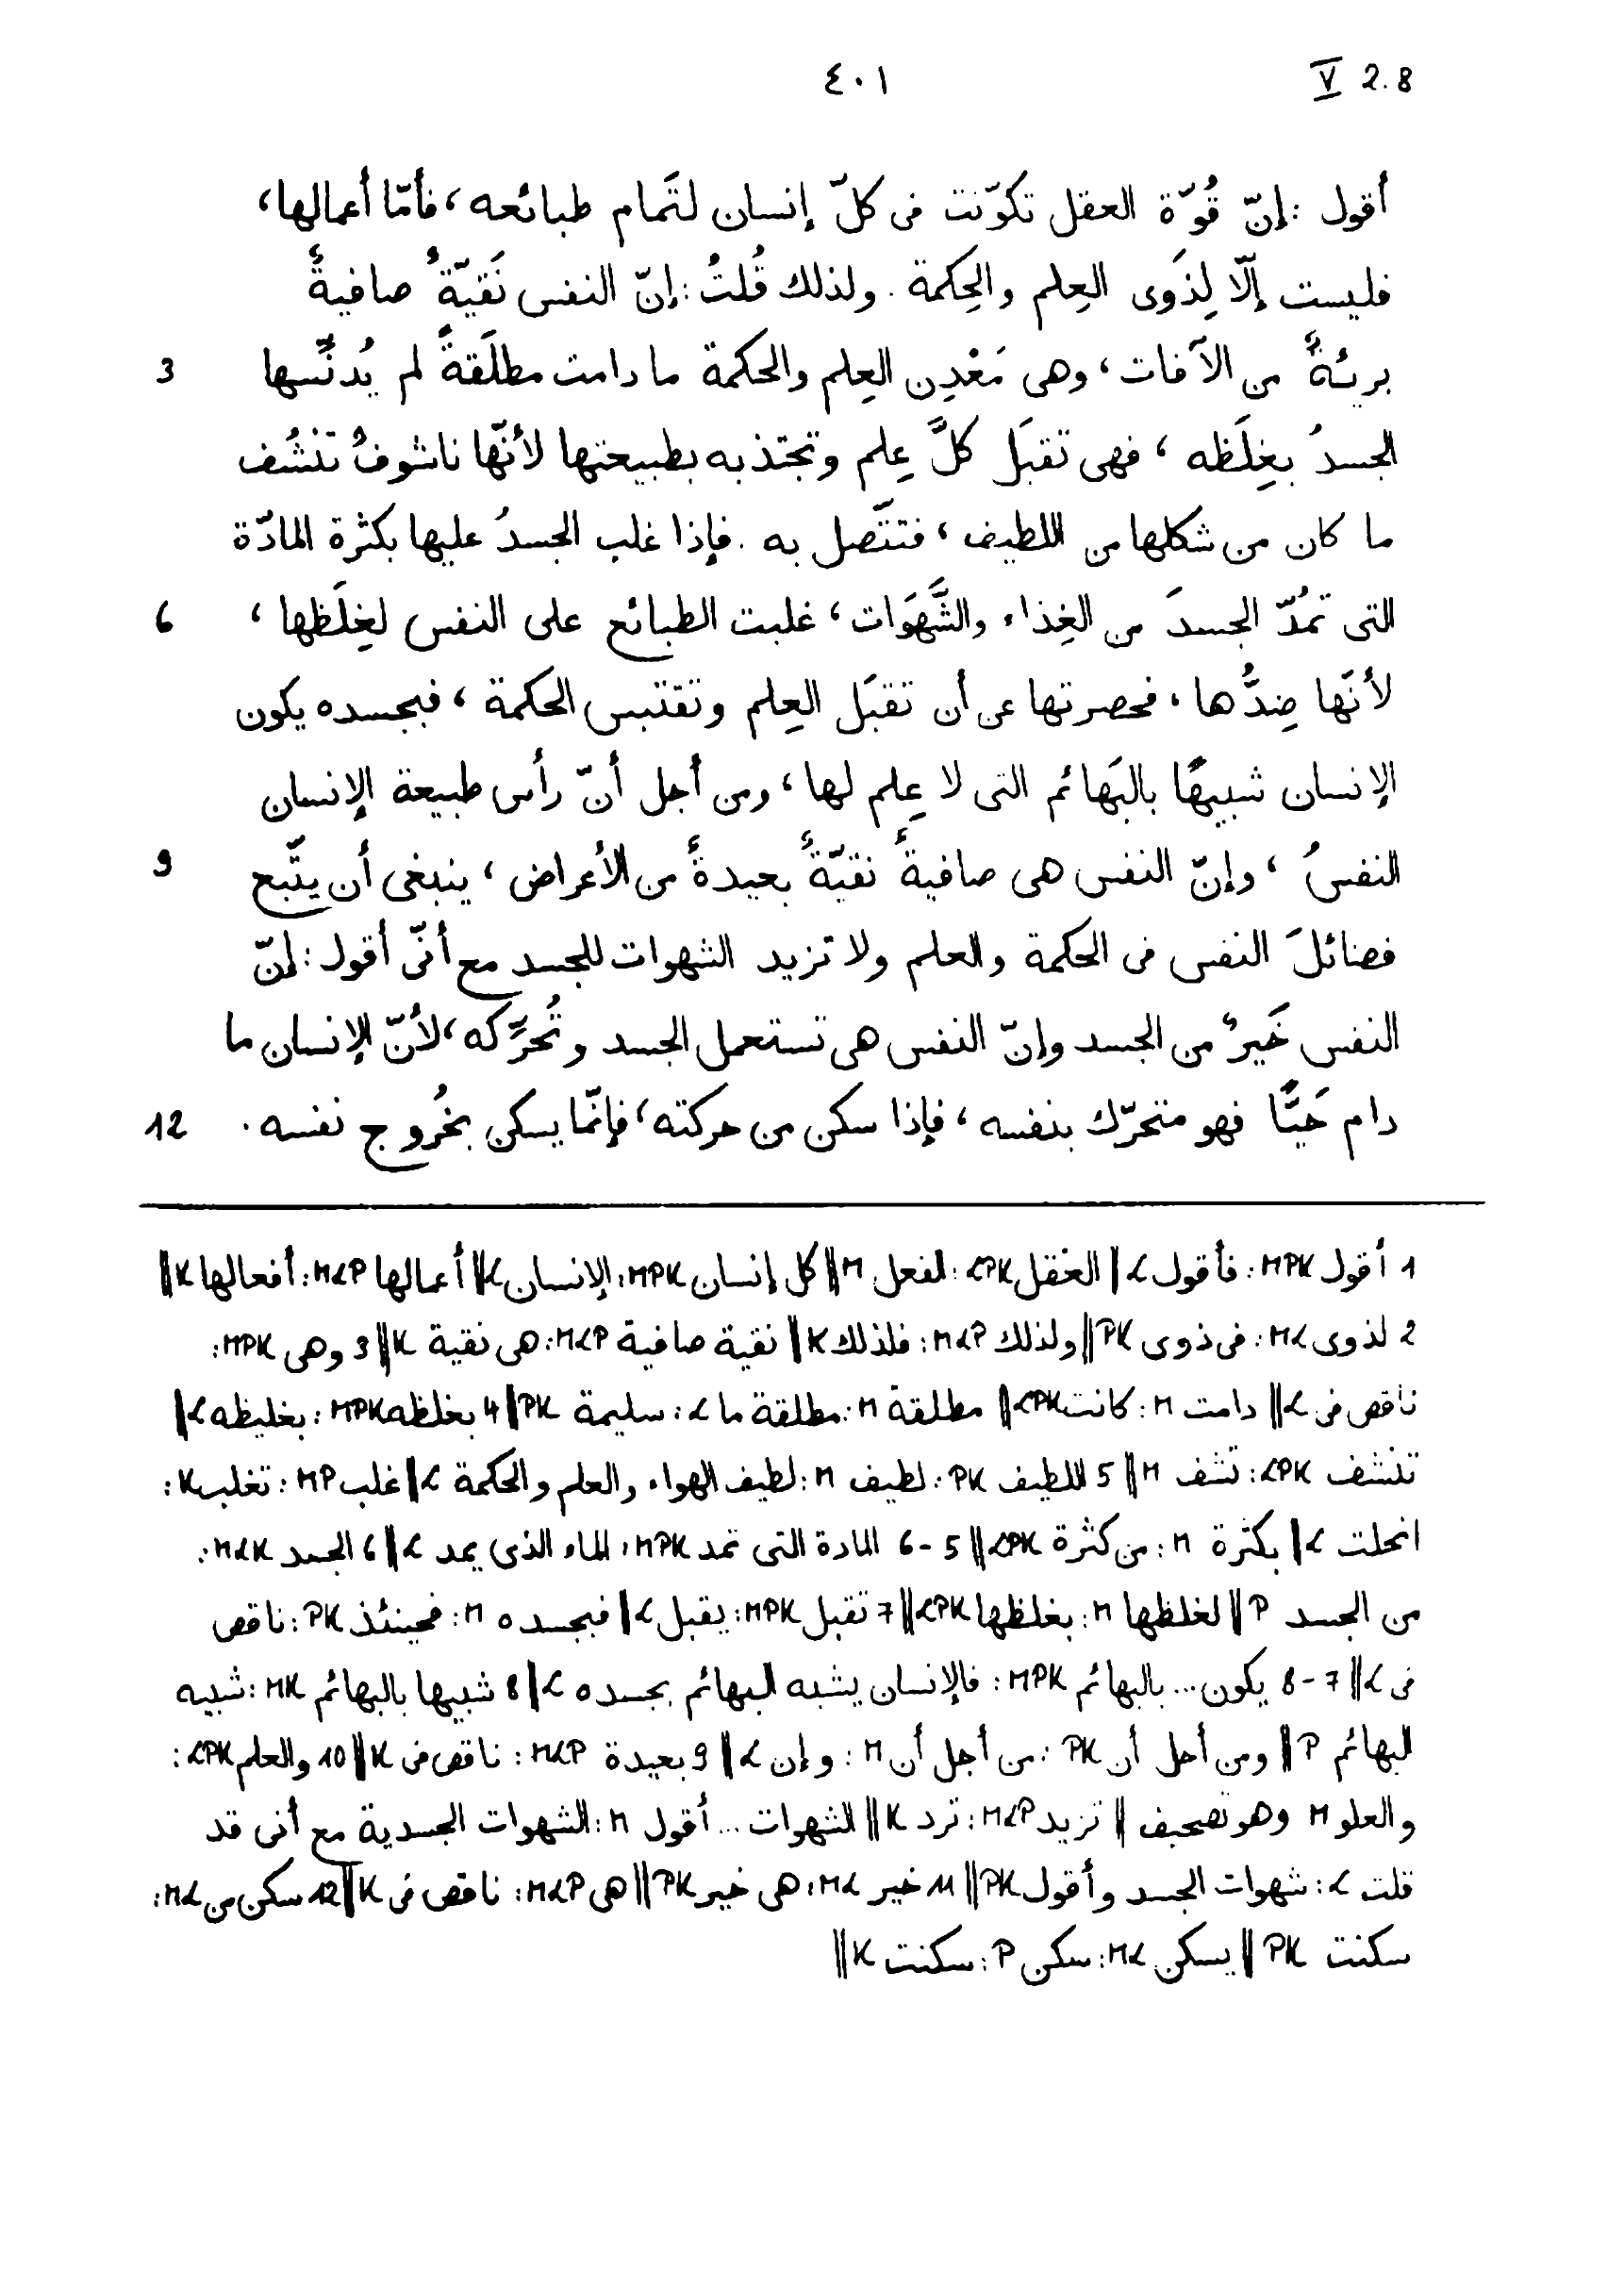 V 2.8 ٤٠١
أقول : إنّ قُوّة العقل تكوّنت فى كلّ إنسان لتَمام طبائعه ، فأمّا أعمالها ،
فليست إلّا لِذَوى العِلم والحِكمة . ولذلك قُلتُ : إنّ النفس نَقيّةٌ صافيةٌ
بريئةٌ من الآفات ، وهى مَعْدِن العِلم والحكمة ما دامت مطلَقةً لم يُدنِّسها 3
الجسدُ بغِلَظه ، فهى تقبَل كلَّ عِلم وتجتذبه بطبيعتها لأنّها ناشوفٌ تنشُف
ما كان من شكلها من اللطيف ، فتتّصل به . فإذا غلب الجسدُ عليها بكثرة المادّة
التى تمُدّ الجسدَ من الغِذاء والشَّهَوات ، غلبت الطبائع على النفس لغِلَظها ، 6
لأنّها ضِدُّها ، فحصرتها عن أن تقبَل العِلم وتقتبس الحكمة ، فبجسده يكون
الإنسان شبيهًا بالبَهائم التى لا عِلم لها ، ومن أجل أنّ رأس طبيعة الإنسان
النفسُ ، وإنّ النفس هى صافيةٌ نقيّةٌ بعيدةٌ من الأعراض ، ينبغى أن يتّبع 9
فضائلَ النفس فى الحكمة والعلم ولا تزيد الشهوات للجسد مع أنّى أقول : إنّ
النفس خَيرٌ من الجسد وإنّ النفس هى تستعمل الجسد وتُحرِّكه ، لأنّ الإنسان ما
دام حَيًّا فهو متحرّك بنفسه ، فإذا سكن من حركته ، فإنّما يسكن بخُروج نفسه . 12
1 أقول MPK : فأقول L || العقل LPK : لفعل M || كل إنسان MPK : الإنسان L || أعمالها MLP : أفعالها K ||
2 لذوى ML : فى ذوى PK || ولذلك MLP : فلذلك K || نقية صافية MLP : هى نقية K || 3 وهى MPK :
ناقص فى L || دامت M : كانت LPK || مطلقة M : مطلقة ما L : سليمة PK || 4 بغلظه MPK : بغليظه L ||
تنشف LPK : تشف M || 5 اللطيف PK : لطيف M : لطيف الهواء والعلم والحكمة L || غلب MP : تغلب K :
انحلت L || بكثرة M : من كثرة LPK || 5-6 المادة التى تمد MPK : الماء الذى يمد L || 6 الجسد MLK :
من الجسد P || لغلظها M : بغلظها LPK || 7 تقبل MPK : يقبل L || فبجسده M : فحينئذ PK : ناقص
فى L || 7-8 يكون ... بالبهائم MPK : فالإنسان يشبه البهائم بجسده L || 8 شبيها بالبهائم MK : شبيه
البهائم P || ومن أجل أن PK : من أجل أن M : وإن L || 9 بعيدة MLP : ناقص فى K || 10 والعلم LPK :
والعلو M وهو تصحيف || تزيد MLP : ترد K || الشهوات ... أقول M : الشهوات الجسدية مع أنى قد
قلت L : شهوات الجسد وأقول PK || 11 خير ML : هى خير PK || هى MLP : ناقص فى K || 12 سكن من ML :
سكنت PK || يسكن ML : سكن P : سكنت K ||